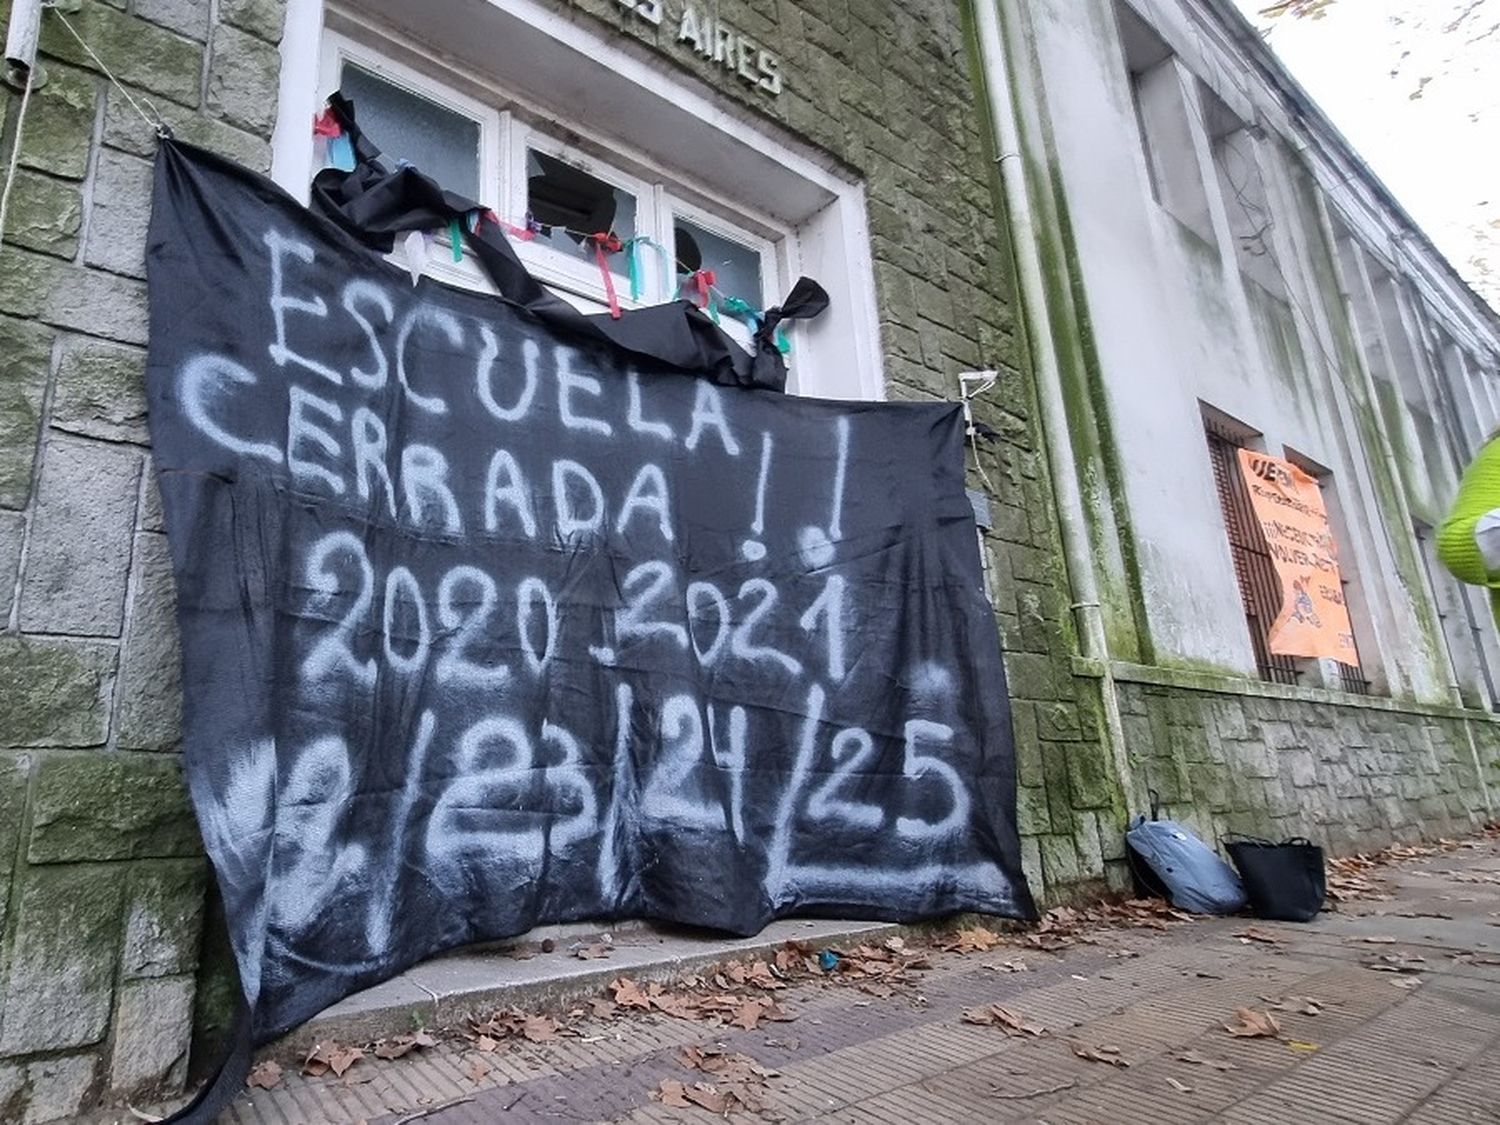 AIRES
ESCUELA
CERRADA !!
2020-2021
/23/24/25